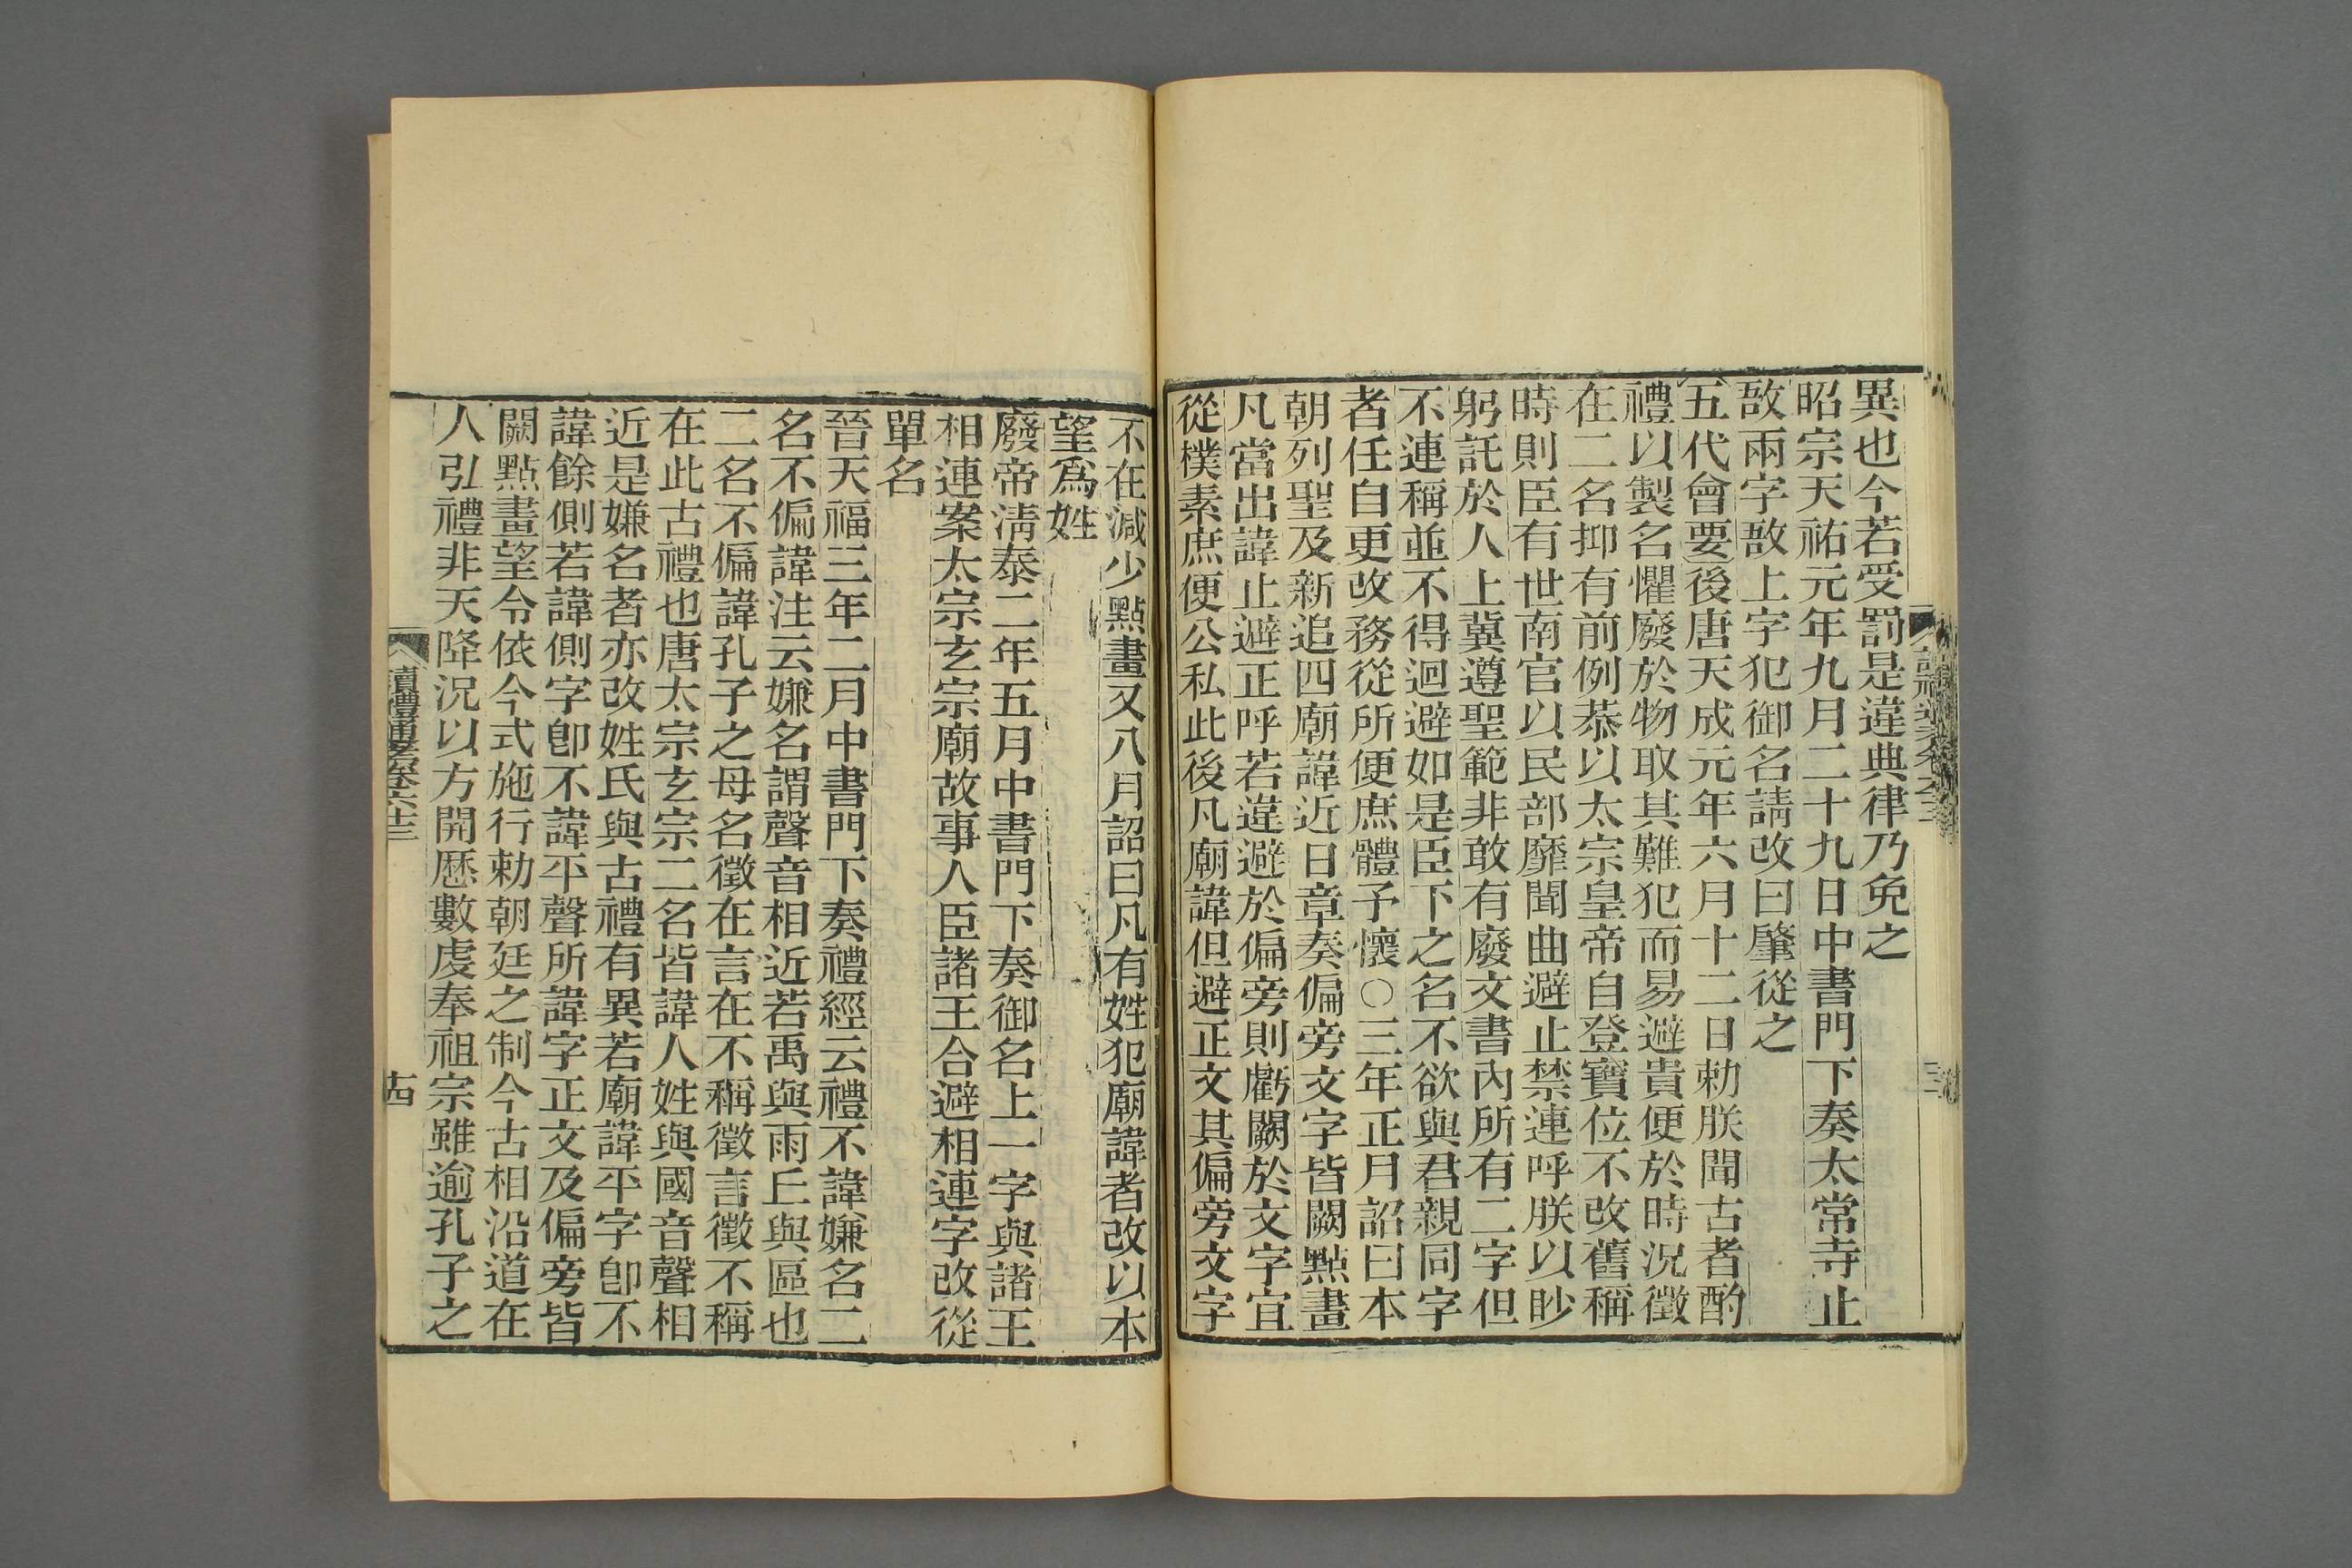 異也今若受罰是違典律乃免之
昭宗天祐元年九月二十九日中書門下奏太常寺止
敔兩字敔上字犯御名請改曰肇從之
五代會要後唐天成元年六月十二日勅朕聞古者酌
禮以製名懼廢於物取其難犯而易避貴便於時況徵
在二名抑有前例恭以太宗皇帝自登寶位不改舊稱
時則臣有世南官以民部靡聞曲避止禁連呼朕以眇
躬託於人上冀遵聖範非敢有廢文書內所有二字但
不連稱並不得迴避如是臣下之名不欲與君親同字
者任自更改務從所便庶體予懷○三年正月詔曰本
朝列聖及新追四廟諱近日章奏偏旁文字皆闕點畫
凡當出諱止避正呼若違避於偏旁則虧闕於文字宜
從樸素庶便公私此後凡廟諱但避正文其偏旁文字
不在減少點畫又八月詔曰凡有姓犯廟諱者改以本
望爲姓
廢帝淸泰二年五月中書門下奏御名上一字與諸王
相連案太宗玄宗廟故事人臣諸王合避相連字改從
單名
晉天福三年二月中書門下奏禮經云禮不諱嫌名二
名不偏諱注云嫌名謂聲音相近若禹與雨丘與區也
二名不偏諱孔子之母名徵在言在不稱徵言徵不稱
在此古禮也唐太宗玄宗二名皆諱人姓與國音聲相
近是嫌名者亦改姓氏與古禮有異若廟諱平字卽不
諱餘側若諱側字卽不諱平聲所諱字正文及偏旁皆
闕點畫望令依今式施行勅朝廷之制今古相沿道在
人弘禮非天降況以方開歷數虔奉祖宗雖逾孔子之
讀禮通考卷六十三
十四